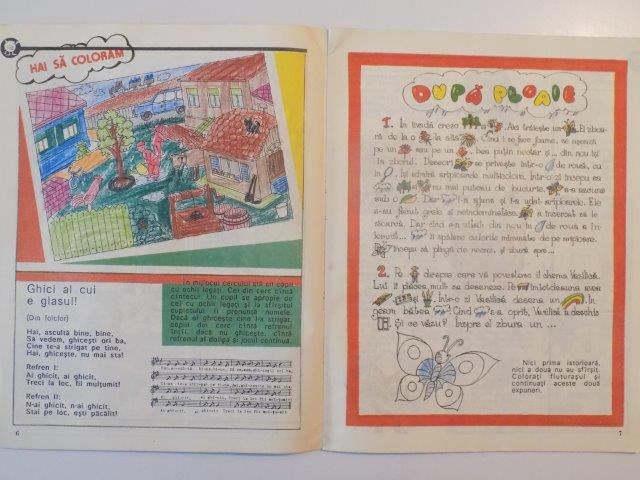 HAI SĂ COLORĂM
Ghici al cui
e glasul!
(Din folclor)
Hai, ascultă bine, bine,
Să vedem, ghicești ori ba,
Cine te-a strigat pe tine,
Hai, ghicește, nu mai sta!
Refren I:
Ai ghicit, ai ghicit,
Treci la loc, fii mulțumit!
Refren II:
N-ai ghicit, n-ai ghicit,
Stai pe loc, ești păcălit!
În mijlocul cercului stă un copil
cu ochii legați. Cei din cerc cîntă
cîntecul. Un copil se apropie de
cel cu ochii legați și la sfîrșitul
cupletului îi prenunță numele.
Dacă el ghicește cine l-a strigat,
copiii din cerc cîntă refrenul
întîi, dacă nu ghicește, cîntă
refrenul al doilea și jocul continuă.
6
DUPĂ PLOAIE
1. În livadă
Așa trăiește
El zboa-
ră de la o la
Cînd i se face foame, se așează
pe un sau pe un bea puțin nectar și... din nou își
ia zborul. Deseori se privește într-o de rouă, ca
în își admiră aripioarele multicolore. Într-o zi începu să
nu mai puteau de bucurie. s-a ascuns
sub o Dar l-a ajuns și i-a udat aripioarele. Ele
s-au făcut grele și neîndemînatice. a încercat să le
scoată. Dar cînd s-a uitat din nou în de rouă a în-
lemnit... îi spălase culorile minunate de pe aripioare.
începu să plîngă de necaz, și zbură spre...
2. Pe despre care vă povestesc îl chema Vasilică.
Lui îi plăcea mult să deseneze. Pe întotdeauna avea
și Într-o zi Vasilică desena un În
geam bătea Cînd s-a oprit, Vasilică a deschis
Și ce văzu? Înspre el zbura un ...
Nici prima istorioară,
nici a doua nu au sfîrșit.
Colorați fluturașul și
continuați aceste două
expuneri.
7